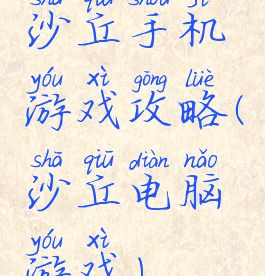 shā qiū shǒu jī
沙丘手机
yóu xì gōng lüè
游戏攻略(
shā qiū diàn nǎo
沙丘电脑
yóu xì
游戏)